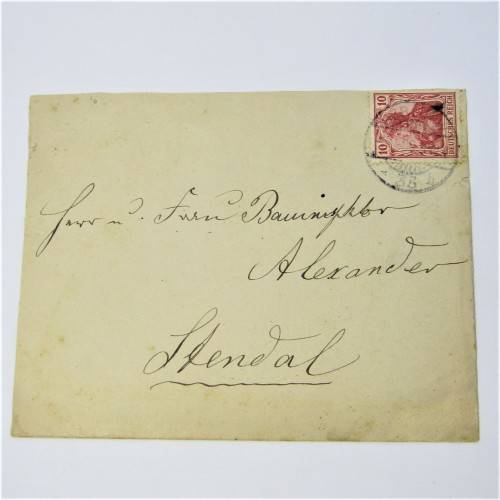 10 10
DEUTSCHES REICH
Herr u. Frau Bauinspktor
Alexander
Stendal